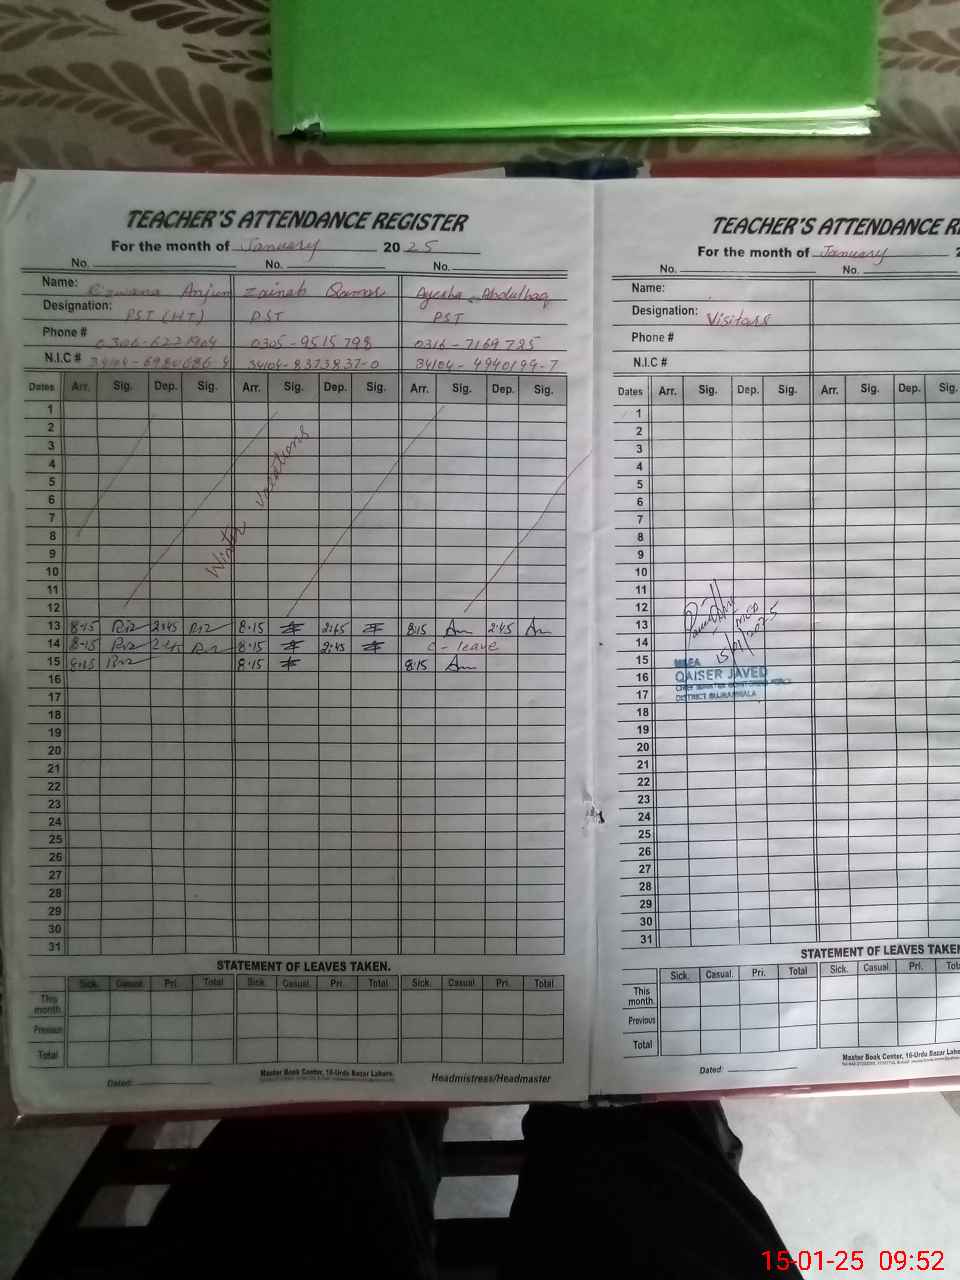 TEACHER'S ATTENDANCE REGISTER
For the month of January 2025
No. No. No.
Name: Rizwana Anjum Zainab Qamar Ayesha Abdulhaq
Designation: PST (H.T) PST PST
Phone # 0306-6221904 0305-9515798 0316-7169725
N.I.C # 34104-6980686-4 34104-8373837-0 34104-4940199-7
Dates Arr. Sig. Dep. Sig. Arr. Sig. Dep. Sig. Arr. Sig. Dep. Sig.
1
2
3
4
5
6
7
8
9
10
11
12
Winter vacations
13 8:15 Riz 2:45 Riz 8:15 2:45 8:15 2:45
14 8:15 Riz 2:45 Riz 8:15 2:45 C-leave
15 8:15 Riz 8:15 8:15
16
17
18
19
20
21
22
23
24
25
26
27
28
29
30
31
STATEMENT OF LEAVES TAKEN.
Sick. Casual. Pri. Total Sick. Casual. Pri. Total Sick. Casual. Pri. Total
This month.
Previous
Total
Dated:
Master Book Center, 16-Urdu Bazar Lahore.
Headmistress/Headmaster
TEACHER'S ATTENDANCE R
For the month of January 2
No. No.
Name:
Designation: Visitors
Phone #
N.I.C #
Dates Arr. Sig. Dep. Sig. Arr. Sig. Dep. Sig.
1
2
3
4
5
6
7
8
9
10
11
12
13
14
15
16
17
18
19
20
21
22
23
24
25
26
27
28
29
30
31
15/01/2025
MEA
QAISER JAVED
CHIEF MINISTER MONITORING FORCE
DISTRICT GUJRANWALA
STATEMENT OF LEAVES TAKEN
Sick. Casual. Pri. Total Sick. Casual. Pri. Tot
This month.
Previous
Total
Dated:
Master Book Center, 16-Urdu Bazar Laho
15-01-25 09:52